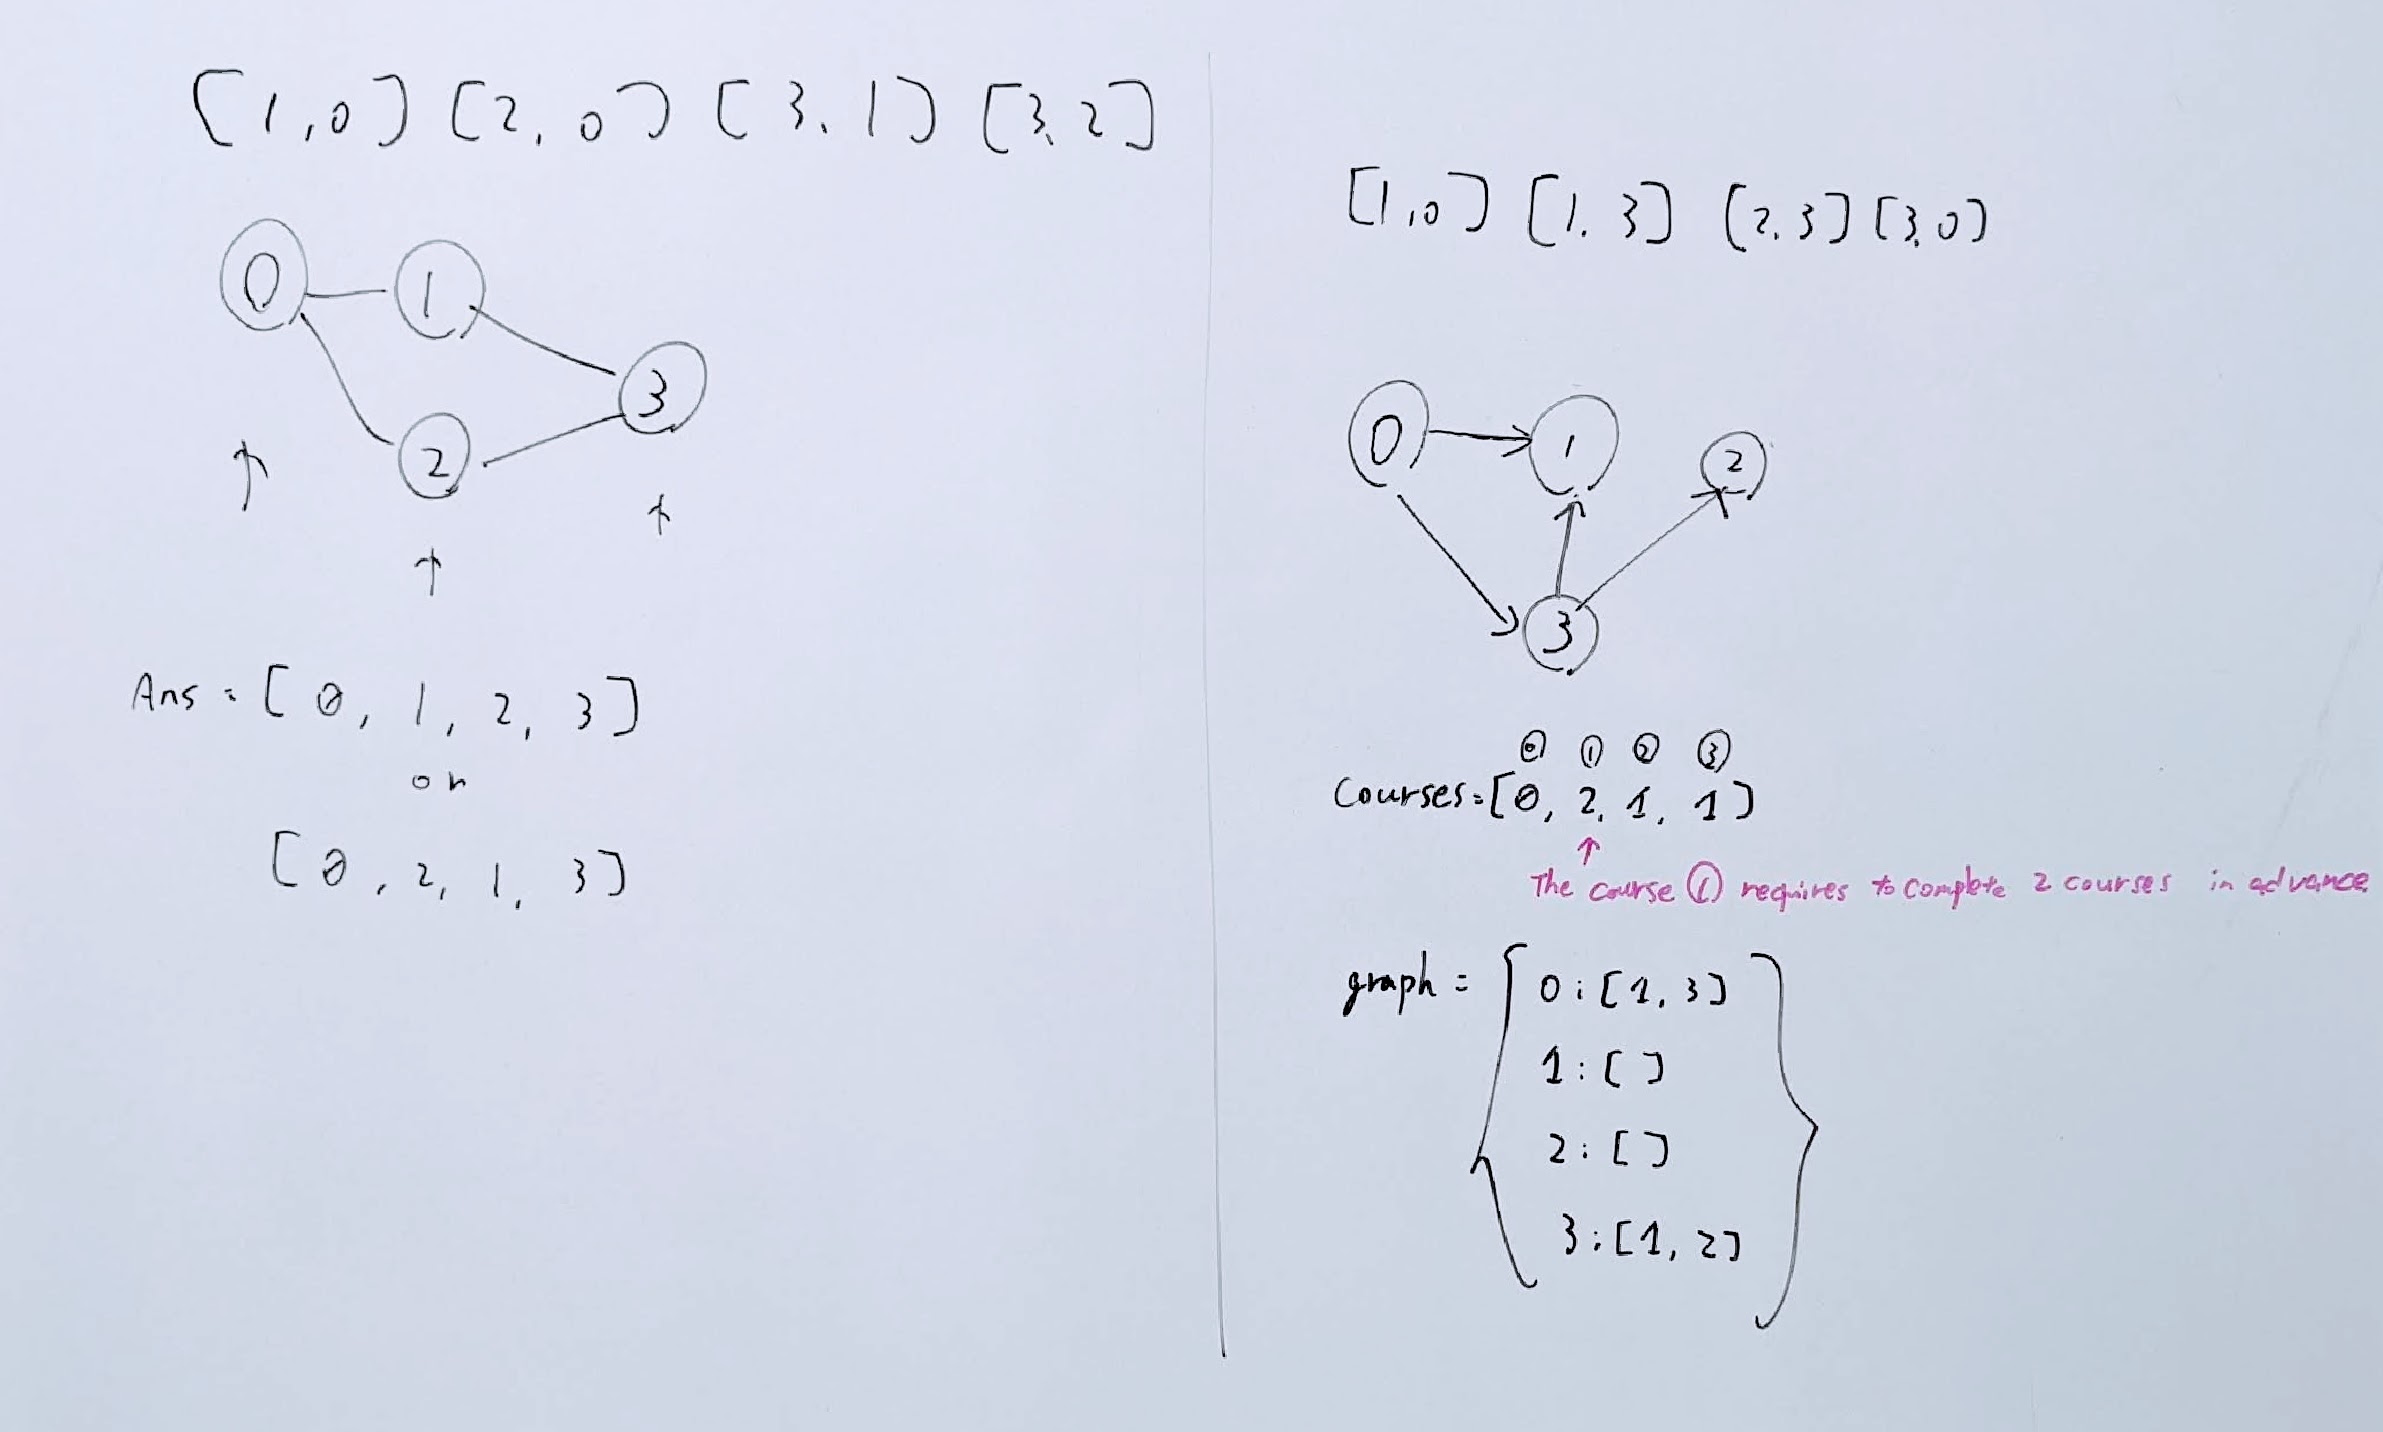 [1,0] [2,0] [3,1] [3,2]
0
1
2
3
Ans = [0, 1, 2, 3]
or
[0, 2, 1, 3]
[1,0] [1,3] [2,3] [3,0]
0
1
2
3
0 1 2 3
Courses=[0, 2, 1, 1]
The course 1 requires to complete 2 courses in advance
graph = { 0:[1, 3]
1:[ ]
2:[ ]
3:[1, 2] }